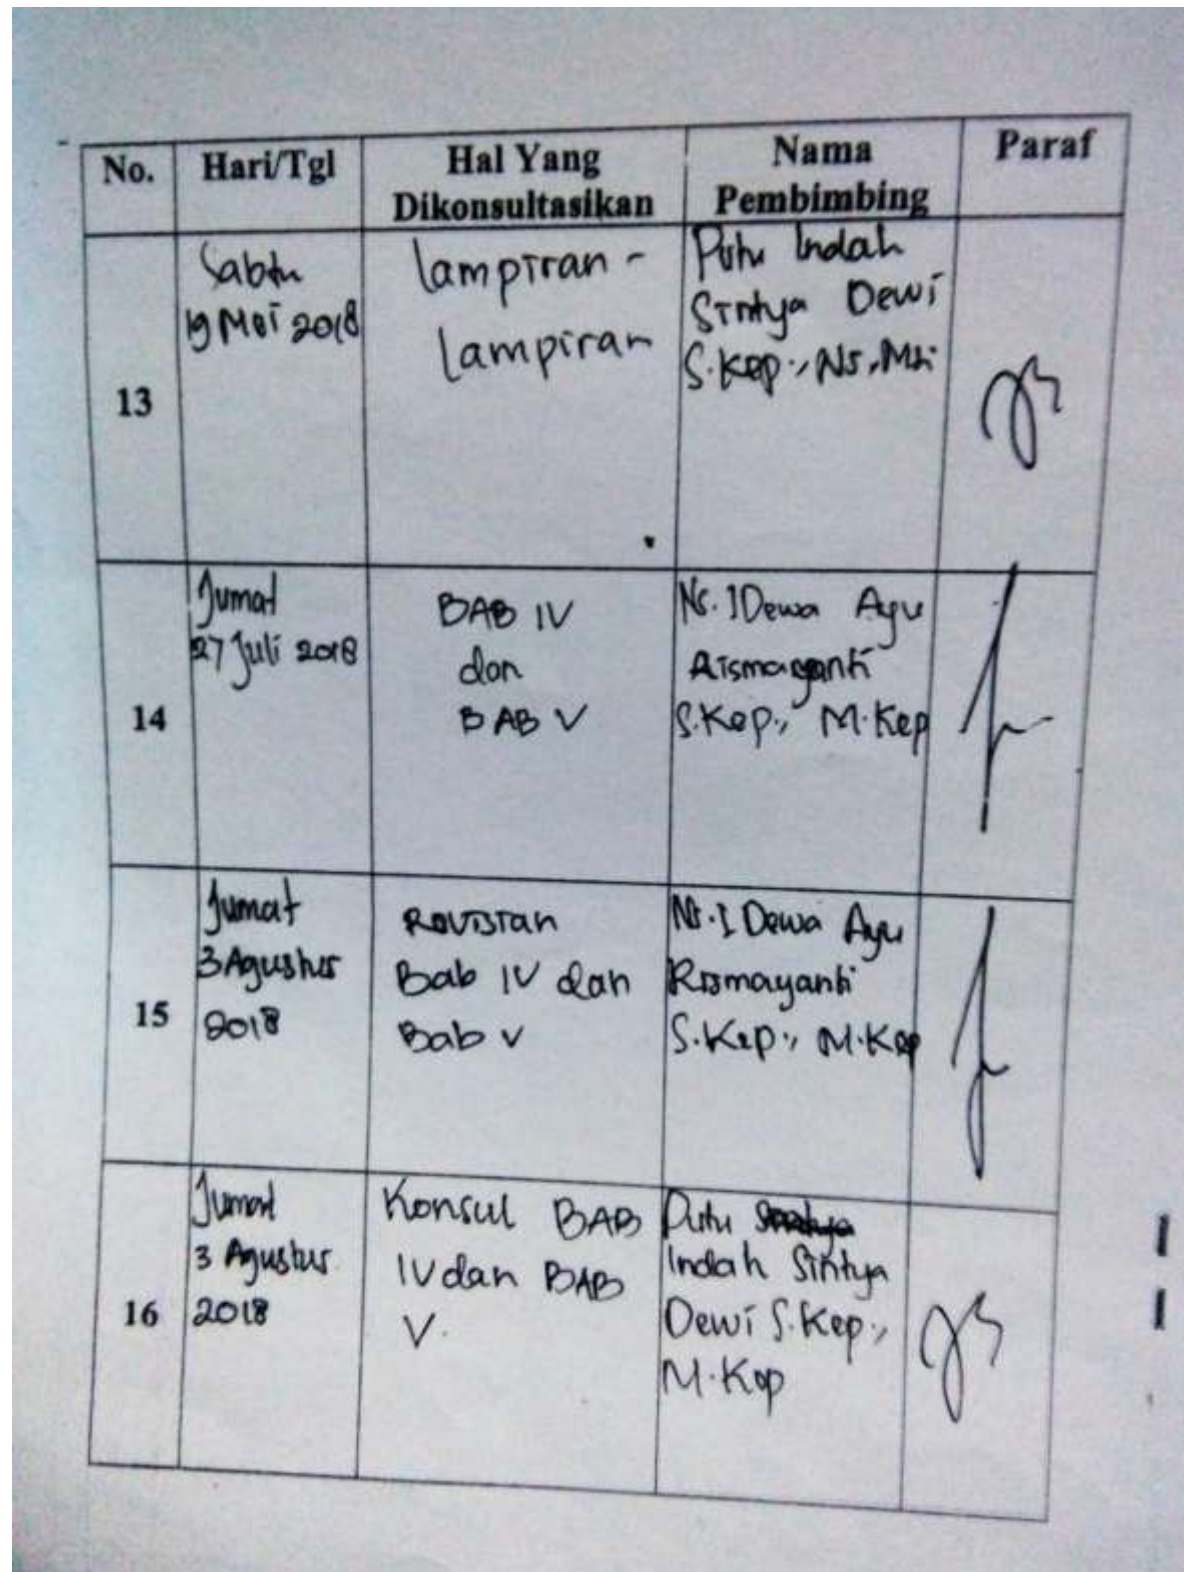 No. Hari/Tgl Hal Yang Dikonsultasikan Nama Pembimbing Paraf
13
Sabtu
19 Mei 2018
lampiran -
lampiran
Putu Indah
Sintya Dewi
S.Kep., Ns, MSi
14
Jumat
27 Juli 2018
BAB IV
dan
BAB V
Ns. I Dewa Ayu
Rismayanti
S.Kep., M.Kep
15
Jumat
3 Agustus
2018
Revisian
Bab IV dan
Bab V
Ns. I Dewa Ayu
Rismayanti
S.Kep., M.Kep
16
Jumat
3 Agustus
2018
Konsul BAB
IV dan BAB
V.
Putu
Indah Sintya
Dewi S.Kep.,
M.Kep